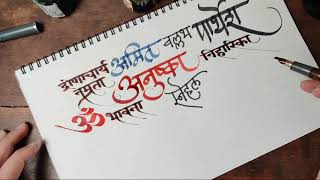 द्रोणाचार्य अमित वल्लभ पार्थेश
नम्रता अनुष्का निहारिका
ॐ भावना स्नेहल